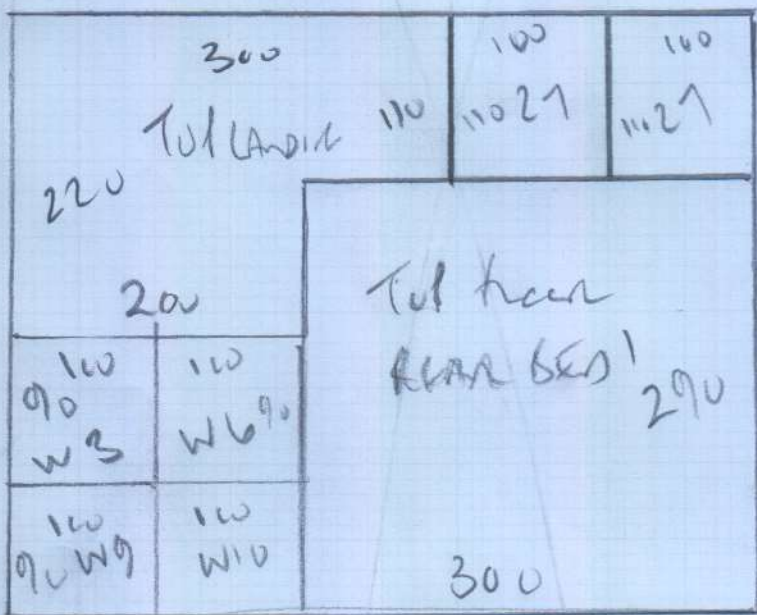 300
100
100
TOP LANDING
110
110 21
110 21
220
200
Top
REAR BED 1
290
100
90
W3
100
W6 90
100
90 W9
100
W10
300